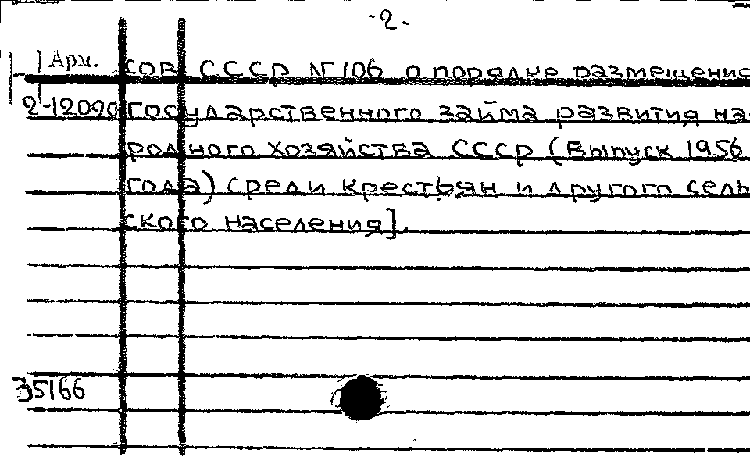 -2.
Арм.
сов СССР № 106 о порядке размещения
2-12090 государственного займа развития на-
родного хозяйства СССР (выпуск 1956
года) среди крестьян и другого сель
ского населения].
35166